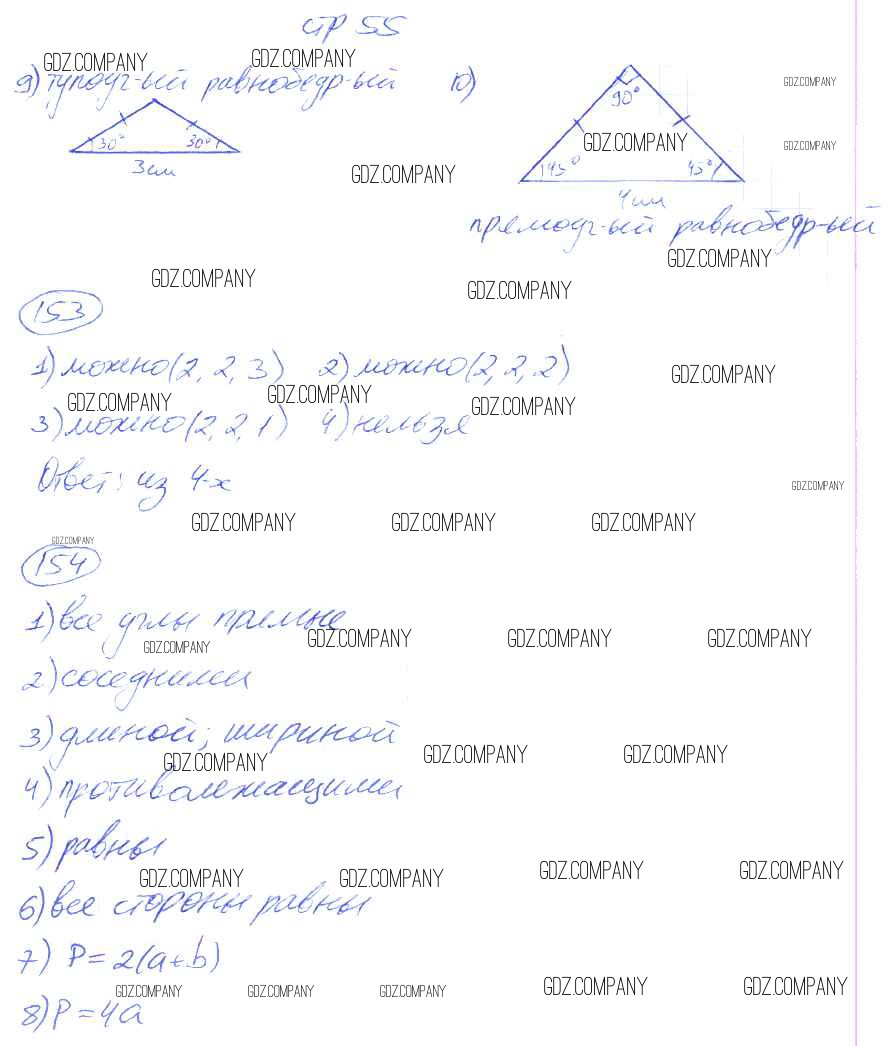 стр 55
GDZ.COMPANY GDZ.COMPANY
9) тупоуг-ый равнобедр-ый 10)
90° GDZ.COMPANY
30° 30° GDZ.COMPANY GDZ.COMPANY
3 см GDZ.COMPANY 45° 45°
4 см
прямоуг-ый равнобедр-ый
GDZ.COMPANY GDZ.COMPANY GDZ.COMPANY
153
1) можно (2, 2, 3) 2) можно (2, 2, 2) GDZ.COMPANY
GDZ.COMPANY GDZ.COMPANY GDZ.COMPANY
3) можно (2, 2, 1) 4) нельзя
Ответ: из 4-х GDZ.COMPANY
GDZ.COMPANY GDZ.COMPANY GDZ.COMPANY
GDZ.COMPANY
154
1) все углы прямые
GDZ.COMPANY GDZ.COMPANY GDZ.COMPANY GDZ.COMPANY
2) соседними
3) длиной; шириной
GDZ.COMPANY GDZ.COMPANY GDZ.COMPANY
4) противолежащими
5) равны
GDZ.COMPANY GDZ.COMPANY GDZ.COMPANY GDZ.COMPANY
6) все стороны равны
7) P = 2(a + b)
GDZ.COMPANY GDZ.COMPANY GDZ.COMPANY GDZ.COMPANY GDZ.COMPANY
8) P = 4a